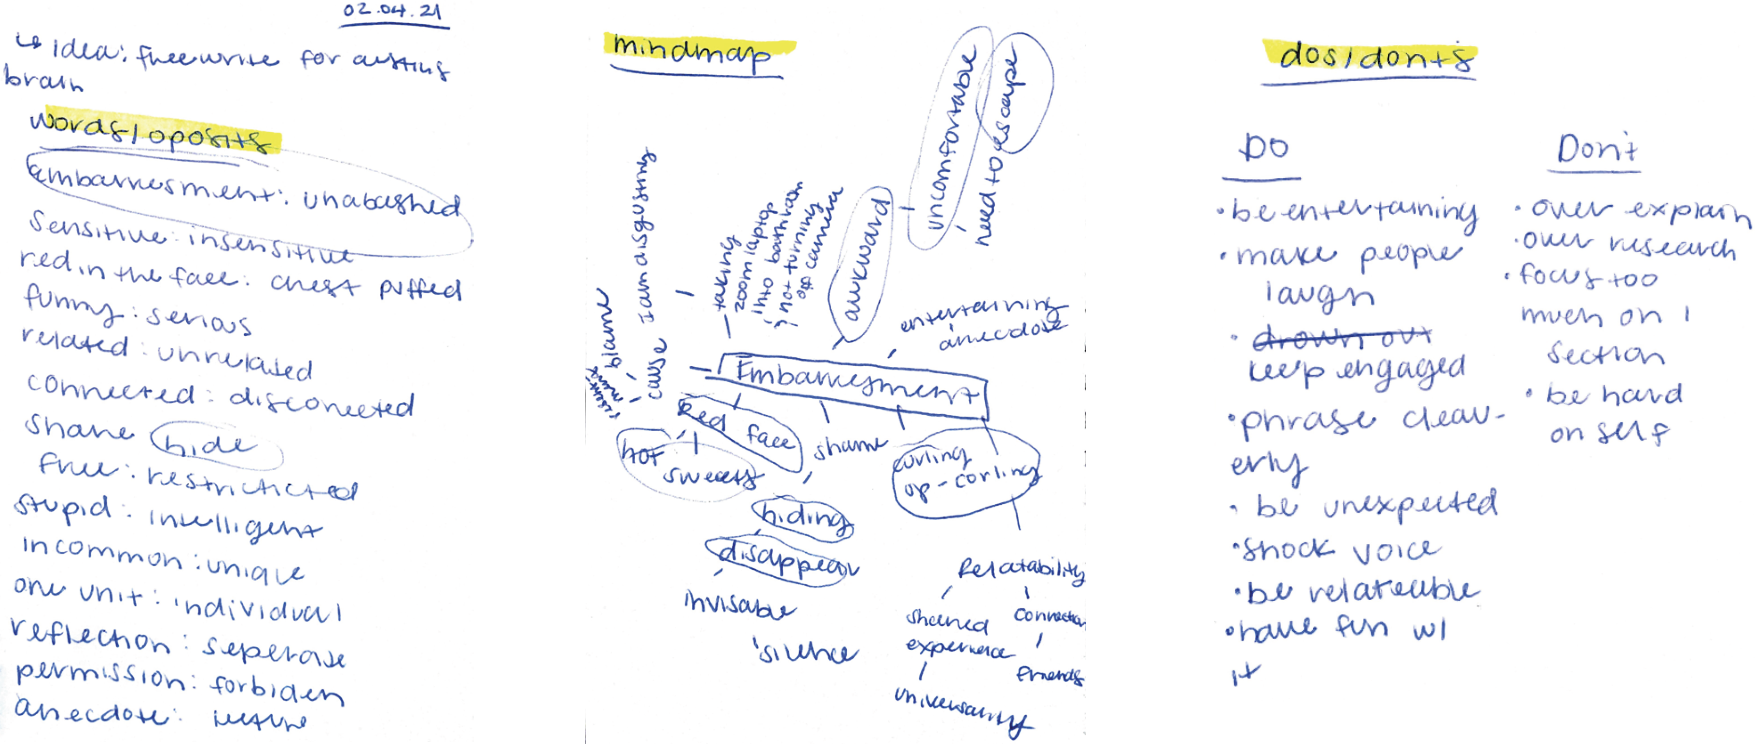 02.04.21
↳ idea: freewrite for austins
brain
words/oposits
embarresment: unabashed
sensitive: insensitive
red in the face: chest puffed
funny: serious
related: unrelated
connected: disconected
shame hide
free: restricticted
stupid: intelligent
in common: unique
one unit: individual
reflection: seperate
permission: forbiden
anecdote: lecture
mindmap
uncomfortable
need to escape
awkward
taking
zoom laptop
into bathroom
; not turning
off camera
cause I am disgusting
blame
entertaining
anecdote
Embarresment
Red face
hot
sweats
shame
curling
up-corling
hiding
disappear
invisable
silence
Relatability
shared
experience
universality
connection
friends
dos/donts
DO
• be entertaining
• make people
laugh
• drown out
keep engaged
• phrase cleav-
erly
• be unexpected
• shock voice
• be relateable
• have fun w/
it
Don't
• over explain
• over research
• focus too
much on 1
section
• be hard
on self